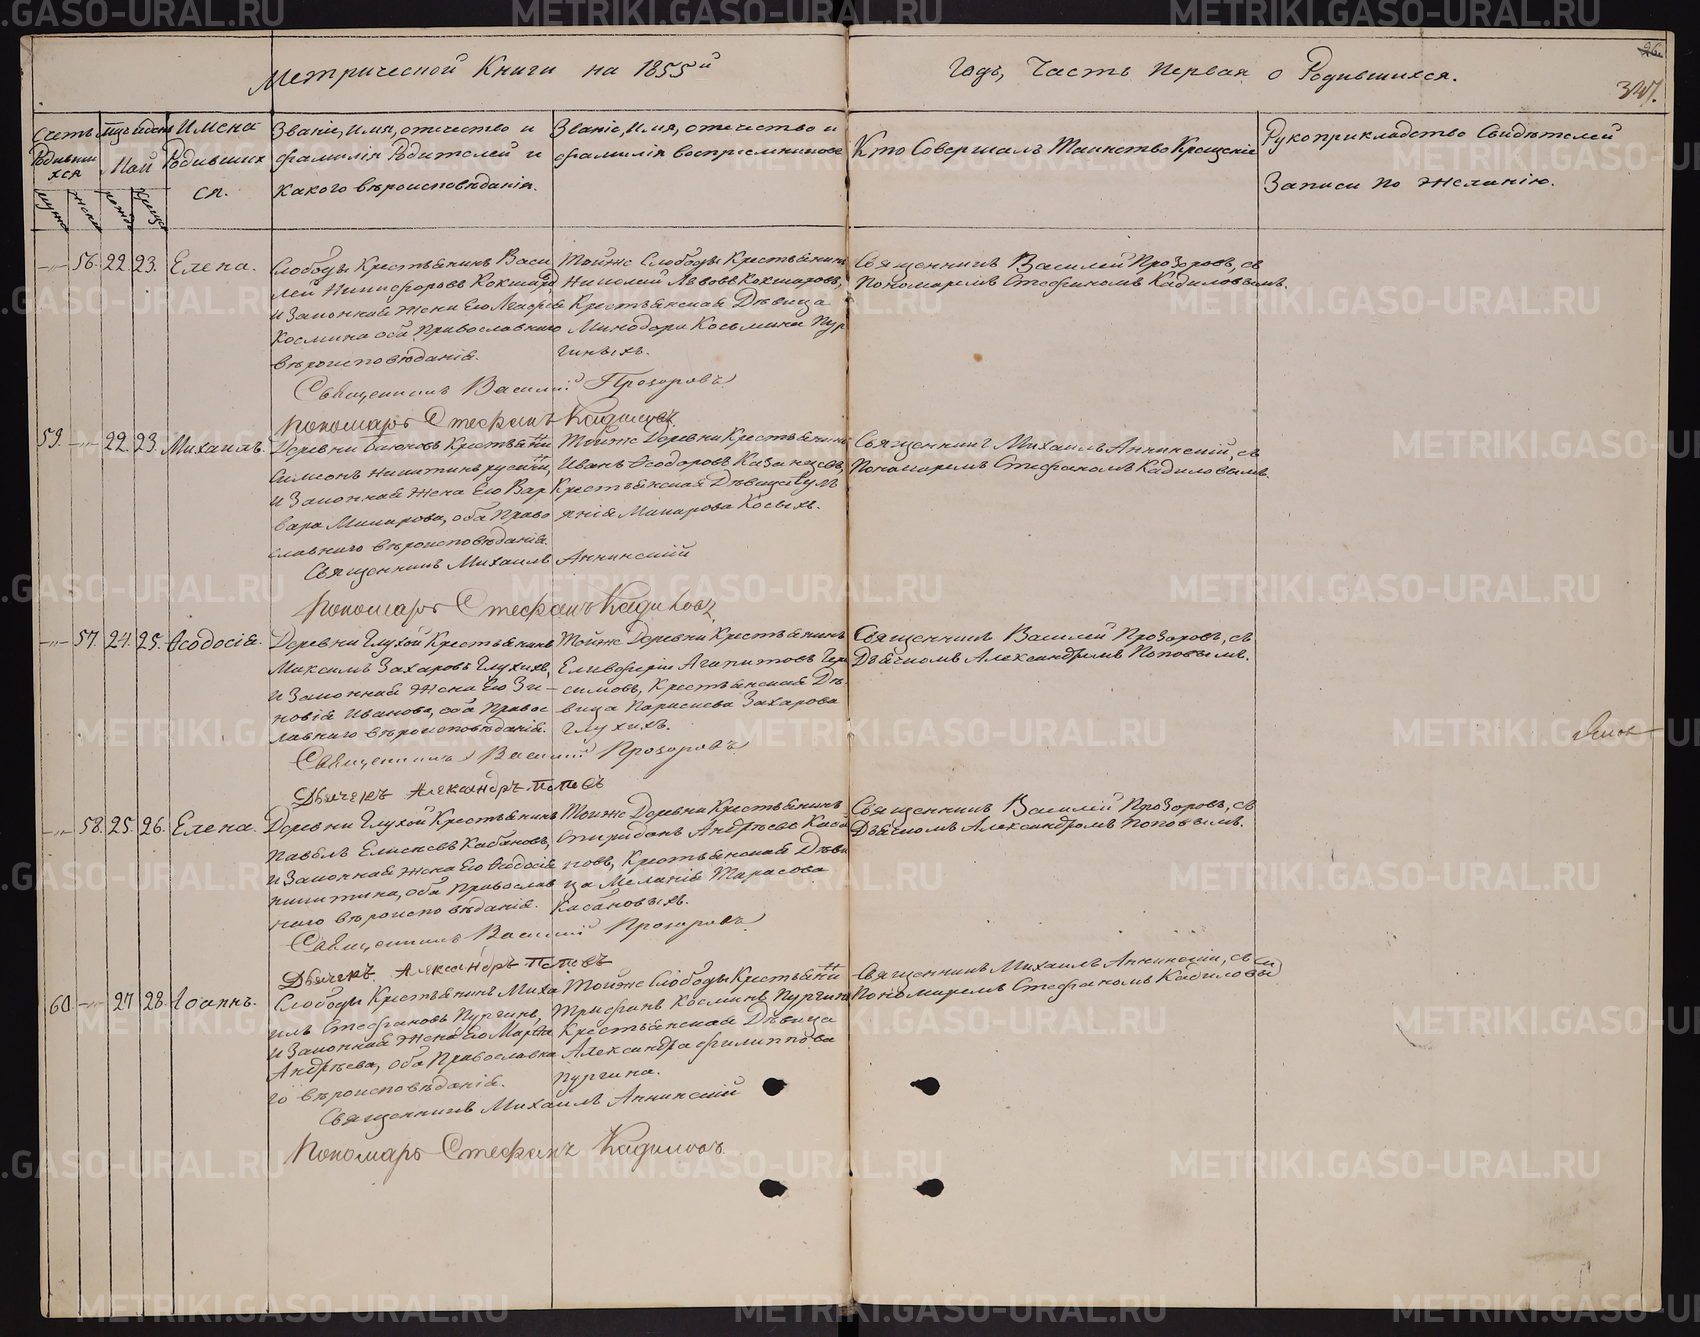 Метрической Книги на 1855й
Годъ, Часть Первая о Родившихся.
347.
Счетъ Родившихся
Май
Имена Родившихся.
Званіе, имя, отечество и
фамилія Родителей и
какого вѣроисповѣданія.
Званіе, имя, отечество и
фамилія воспріемниковъ
Кто Совершалъ Таинство Крещенія
Рукоприкладство Свидѣтелей
Записи по желанію.
56. 22. 23. Елена.
Слободы Крестьянинъ Васи
лей Никифоровъ Кокшаровъ
и Законная жена Его Агафья
Космина оба Православнаго
вѣроисповѣданія.
Тойже Слободы Крестьянинъ
Николай Львовъ Кокшаровъ,
Крестьянская Дѣвица
Минодора Косьмина Пур
гиныхъ.
Священникъ Василей Прозоровъ, съ
Пономаремъ Стефаномъ Кадиловымъ.
Священникъ Василій Прозоровъ
Пономарь Стефанъ Кадиловъ
59. 22. 23. Михаилъ.
Деревни Крестьянинъ
Симеонъ Никитинъ
и Законная жена Его Вар
вара Макарова, оба Право
славнаго вѣроисповѣданія.
Тойже Деревни Крестьянинъ
Иванъ Ѳеодоровъ Казанцовъ,
Крестьянская Дѣвица Іул
янія Макарова Косыхъ.
Священникъ Михаилъ Аннинскій, съ
Пономаремъ Стефаномъ Кадиловымъ.
Священникъ Михаилъ Аннинскій
Пономарь Стефанъ Кадиловъ
57. 24. 25. Ѳеодосія.
Деревни Глухой Крестьянинъ
Максимъ Захаровъ Глухихъ,
и Законная жена Его Зи-
новія Иванова, оба Правос
лавнаго вѣроисповѣданія.
Тойже Деревни Крестьянинъ
Елевферій Агапитовъ Гера
симовъ, Крестьянская Дѣ-
вица Параскева Захарова
Глухихъ.
Священникъ Василей Прозоровъ, съ
Дьячкомъ Александромъ Поповымъ.
Священникъ Василій Прозоровъ
Дьячекъ Александръ Поповъ
58. 25. 26. Елена.
Деревни Глухой Крестьянинъ
Павелъ Елисеевъ Кабановъ,
и Законная жена Его Ѳеодосія
Никитина, оба Православ
наго вѣроисповѣданія.
Тойже Деревни Крестьянинъ
Спиридонъ Андреевъ Каба
новъ, Крестьянская Дѣви
ца Меланія Тарасова
Кабановыхъ.
Священникъ Василей Прозоровъ, съ
Дьячкомъ Александромъ Поповымъ.
Священникъ Василій Прозоровъ
Дьячекъ Александръ Поповъ
60. 27. 28. Іоаннъ.
Слободы Крестьянинъ Миха
илъ Стефановъ Пургинъ,
и Законная жена Его Марѳа
Андреева, оба Православна
го вѣроисповѣданія.
Тойже Слободы Крестьянинъ
Трифонъ Косминъ Пургинъ
Крестьянская Дѣвица
Александра Филиппова
Пургина.
Священникъ Михаилъ Аннинскій, съ
Пономаремъ Стефаномъ Кадиловы
Священникъ Михаилъ Аннинскій
Пономарь Стефанъ Кадиловъ
METRIKI.GASO-URAL.RU